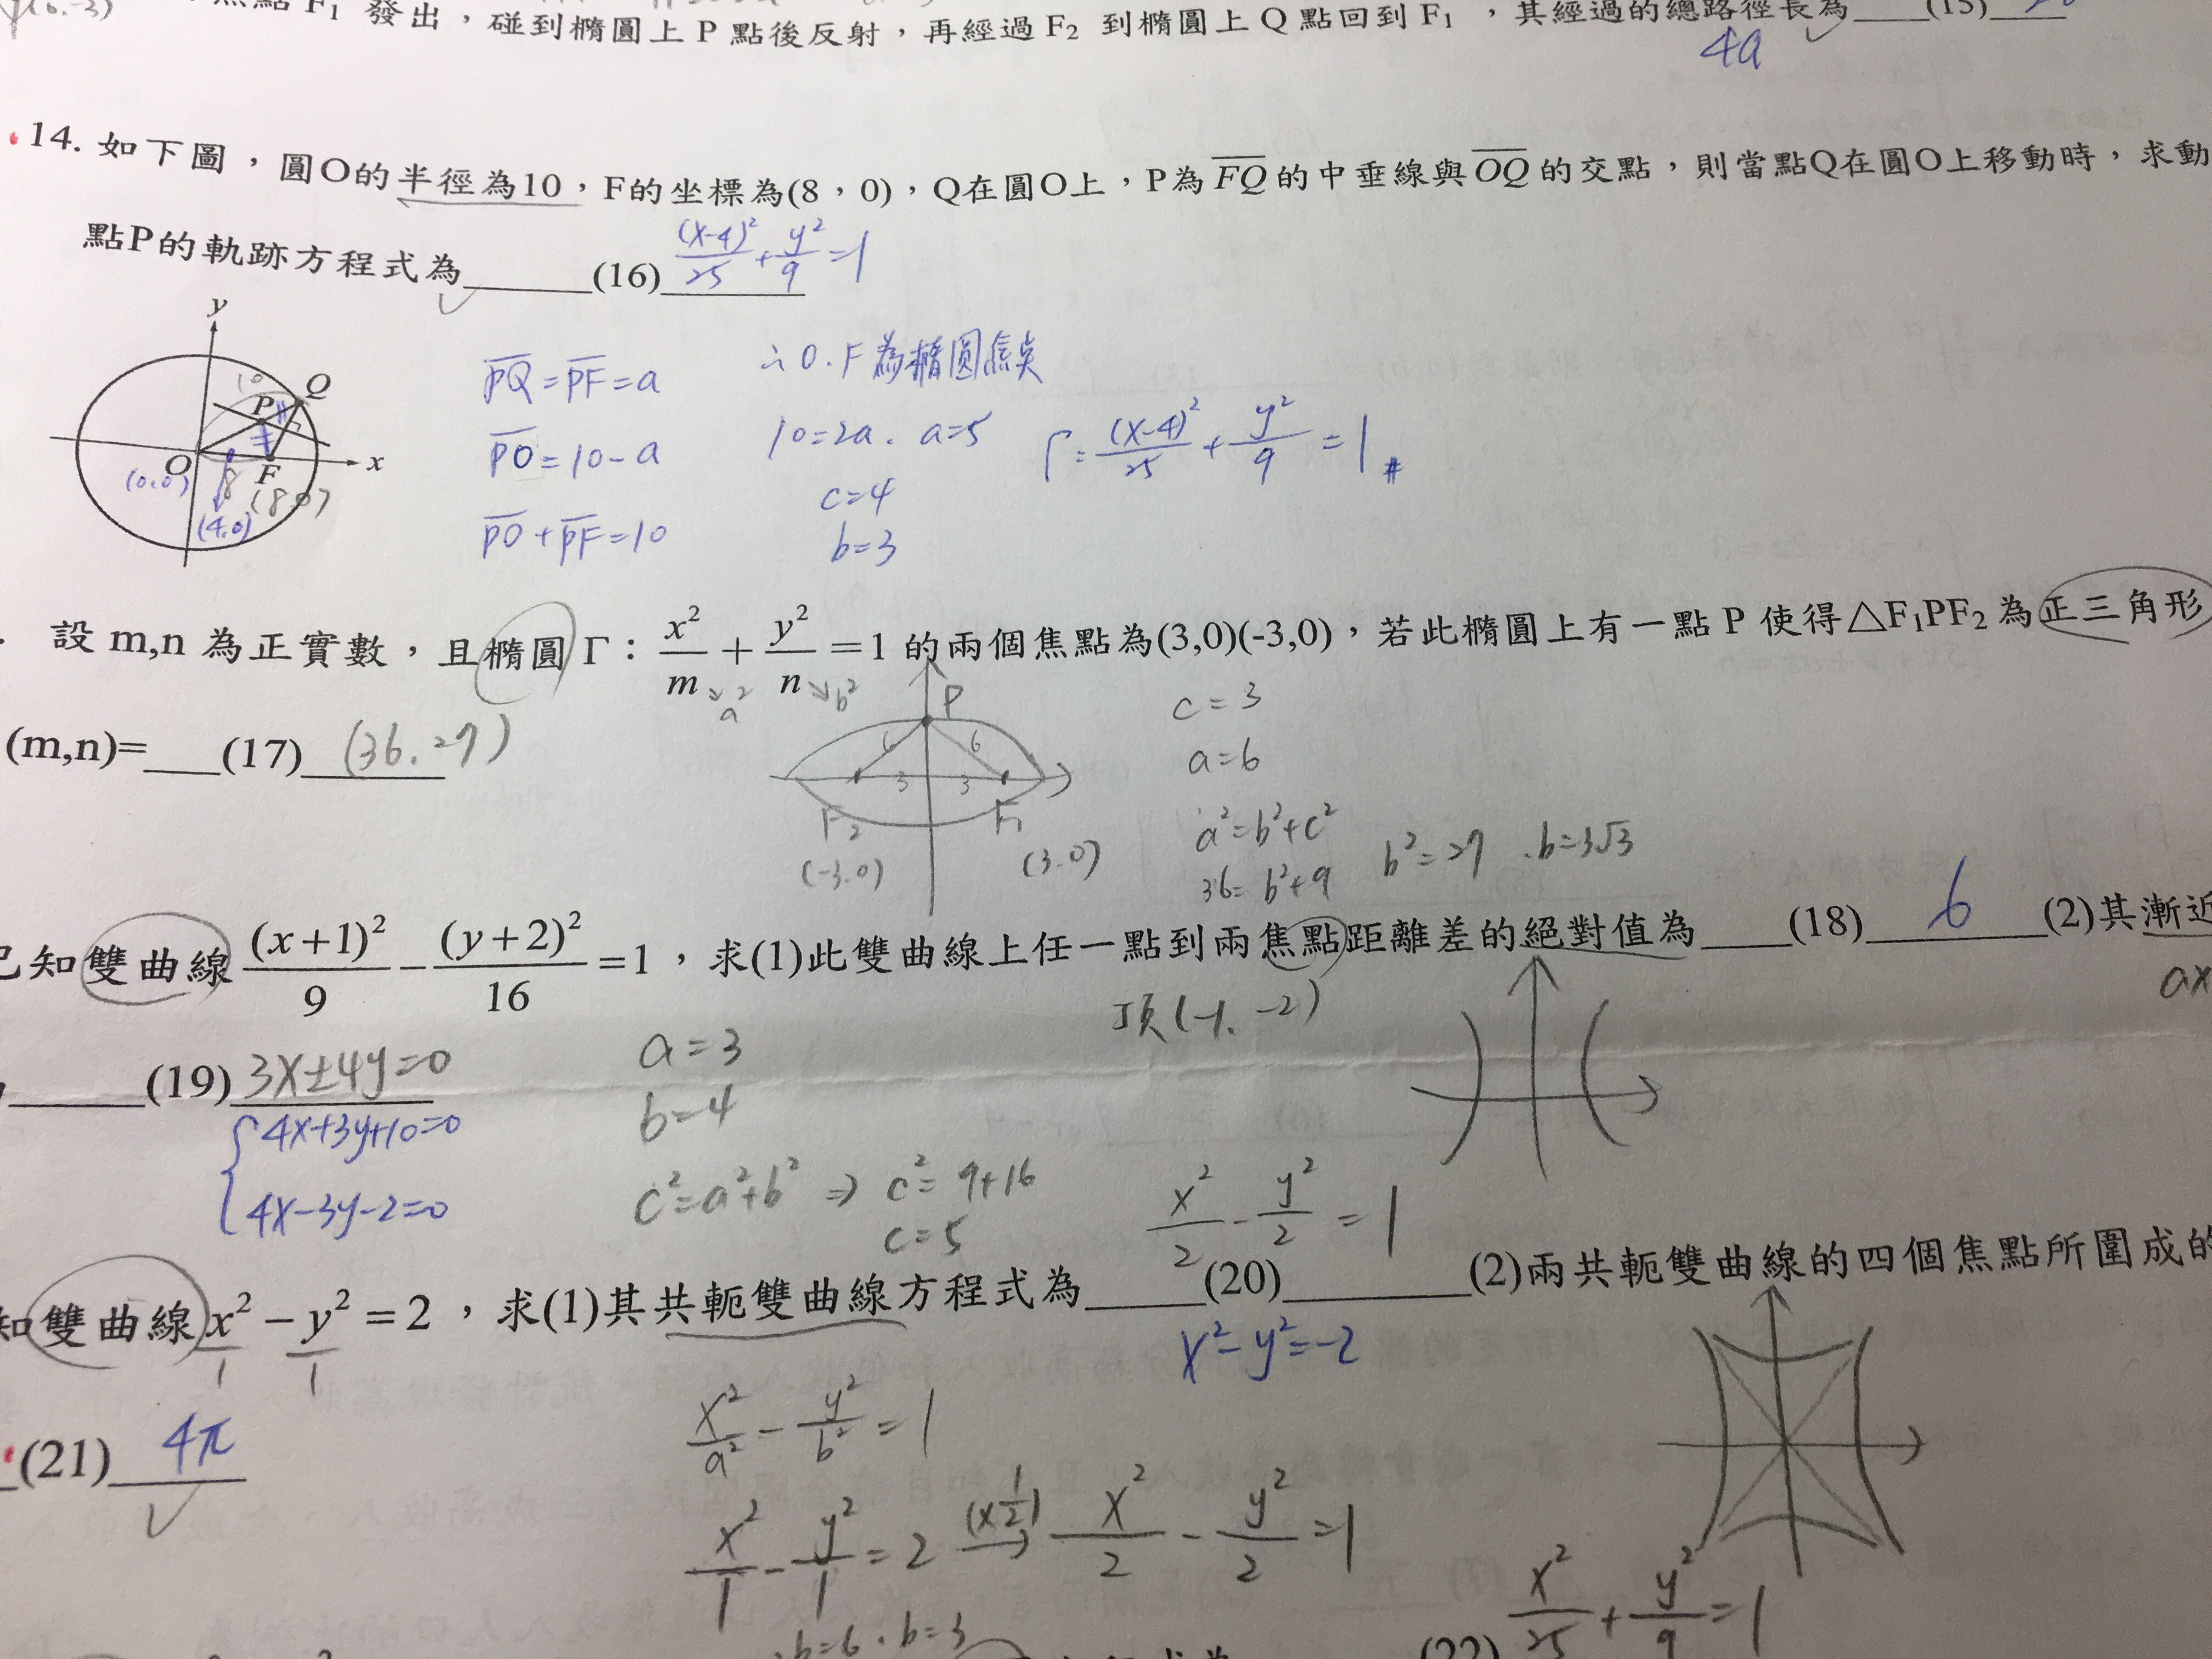 y(6.-3)
焦點 F₁ 發出，碰到橢圓上 P 點後反射，再經過 F₂ 到橢圓上 Q 點回到 F₁，其經過的總路徑長為____(15)____
4a
14. 如下圖，圓O的半徑為10，F的坐標為(8，0)，Q在圓O上，P為 FQ 的中垂線與 OQ 的交點，則當點Q在圓O上移動時，求動
點P的軌跡方程式為______(16) (x-4)²/25 + y²/9 = 1
y
10
Q
P
O
F
x
(0.0)
8
(8.0)
(4.0)
PQ = PF = a
PO = 10 - a
PO + PF = 10
∴ O.F 為橢圓焦点
10=2a. a=5
c=4
b=3
Γ: (x-4)²/25 + y²/9 = 1 #
設 m,n 為正實數，且橢圓 Γ：x²/m + y²/n = 1 的兩個焦點為(3,0)(-3,0)，若此橢圓上有一點 P 使得△F₁PF₂ 為正三角形
a²
b²
(m,n)=___(17) (36.27)
P
6
6
3
3
F₂
F₁
(-3.0)
(3.0)
c = 3
a = 6
a²=b²+c²
36= b²+9
b²=27 .b=3√3
已知雙曲線 (x+1)²/9 - (y+2)²/16 = 1，求(1)此雙曲線上任一點到兩焦點距離差的絕對值為____(18) 6 (2)其漸近
ax
頂(-1. -2)
______(19) 3x±4y=0
{ 4x+3y+10=0
4x-3y-2=0
a = 3
b = 4
c²=a²+b² ⇒ c²= 9+16
c = 5
x²/2 - y²/2 = 1
知雙曲線 x² - y² = 2，求(1)其共軛雙曲線方程式為_____(20)________(2)兩共軛雙曲線的四個焦點所圍成的
1 1
x²-y²=-2
(21) 4π
x²/a² - y²/b² = 1
x²/1 - y²/1 = 2 (×1/2)→ x²/2 - y²/2 = 1
b=6 . b=3
(22) x²/25 + y²/9 = 1